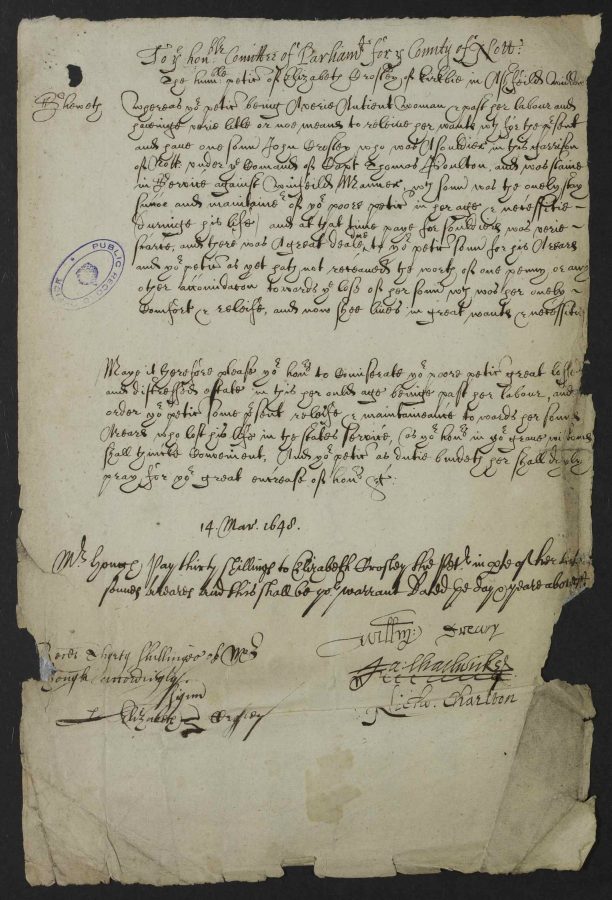 To ye honble Comittee of Parliamt for ye County of Nott:
The humble petic of Elizabeth Crosley of Kirkbie in Ashfeild widdow
Sheweth
whereas yor peticr being A verie Antient woman & past her labour and
haveinge verie litle or noe meanes to releive her wants wth for the psent
and have one sonn John Crosley who was A souldier in this garrison
of Nott under ye Comand of Capt Thomas Poulton, and was slaine
in Service against Winfeild Manner, wch sonn was the onely stay
succor and maintaine of yor poore peticr in her age & necessitie
duringe his life, and at that time paye for souldiers was verie
scarce, and there was A great deale due to yor peticr sonn for his Arears
and yor peticr as yet hath not receaved the worth of one penny or any
other accomidacon towards ye loss of her sonn wch was her onely
Comfort & releife, and now shee lives in great wants & necessitie
PUBLIC RECORD OFFICE
Maye it therefore please yor honrs to Comiserate yor poore peticr great losse
and distressed estate in this her ould age beinge past her labour, and
order yor peticr some psent releife & maintaineance towards her sonns
Arears who lost his life in the states service, (as yor honrs in yor grave wisdoms
shall thincke Convenient, And yor peticr as dutie bindeth her shall dayly
pray for yor great encrease of honr &c:
14. Mar. 1648.
Mr Hough Pay thirty shillings to Elizabeth Crosley the Petr in pte of her
sonnes areares and this shall be yor warrant Dated ye day & yeare above
Willm: Drewry
Reced Thirty shillinges of Mr
Hough accordingly
Fa: Chadwicke
signu
Elizabeth Crosley
Richo. Charlton